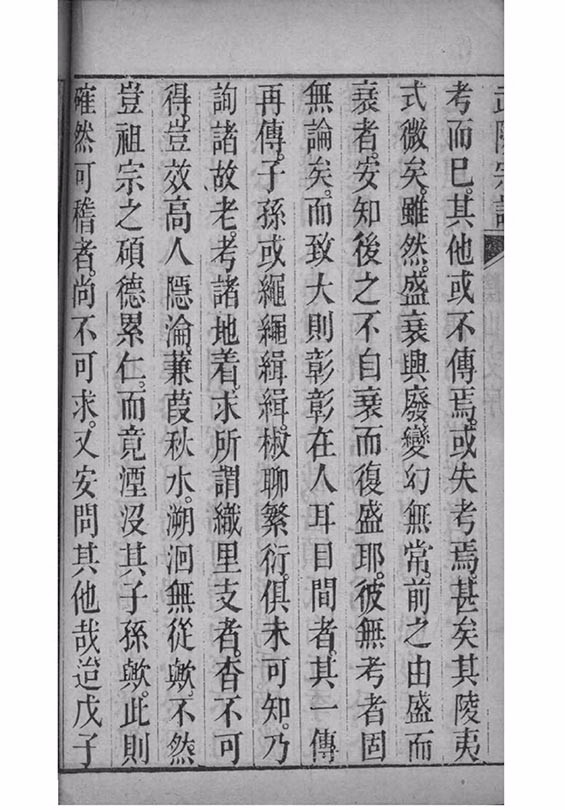 考而已。其他或不傳焉。或失考焉。甚矣其陵夷
式微矣。雖然。盛衰興廢。變幻無常。前之由盛而
衰者。安知後之不自衰而復盛耶。彼無考者固
無論矣。而致大則彰彰在人耳目間者。其一傳
再傳。子孫或繩繩緝緝。椒聊繁衍。俱未可知。乃
詢諸故老。考諸地着。求所謂織里支者。杳不可
得。豈效高人隱淪。蒹葭秋水。溯洄無從歟。不然
豈祖宗之碩德累仁。而竟湮沒其子孫歟。此則
確然可稽者。尚不可求。又安問其他哉。迨戊子